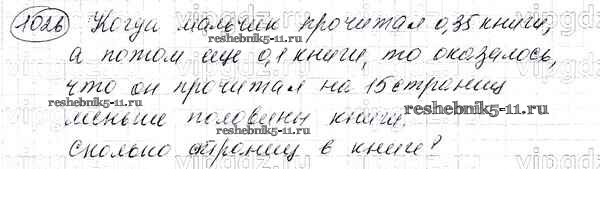 1026 Когда мальчик прочитал 0,35 книги,
а потом еще 0,1 книги, то оказалось,
что он прочитал на 15 страниц
меньше половины книги.
Сколько страниц в книге?
reshebnik5-11.ru
reshebnik5-11.ru
reshebnik5-11.ru
reshebnik5-11.ru
vipgdz.ru